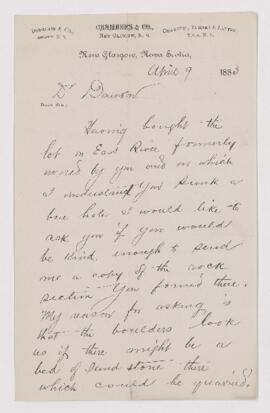 CHAMBERS & CO.,
NEW GLASGOW, N. S.
New Glasgow, Nova Scotia,
April 9 1883
Dr Dawson
Dear Sir:
Having bought the
lot on East River formerly
owned by you and on which
I understand you sunk a
bore hole I would like to
ask you if you would
be kind enough to send
me a copy of the rock
section you found there.
My reason for asking is
that the boulders look
as if there might be a
bed of sand stone there
which could be quarried.